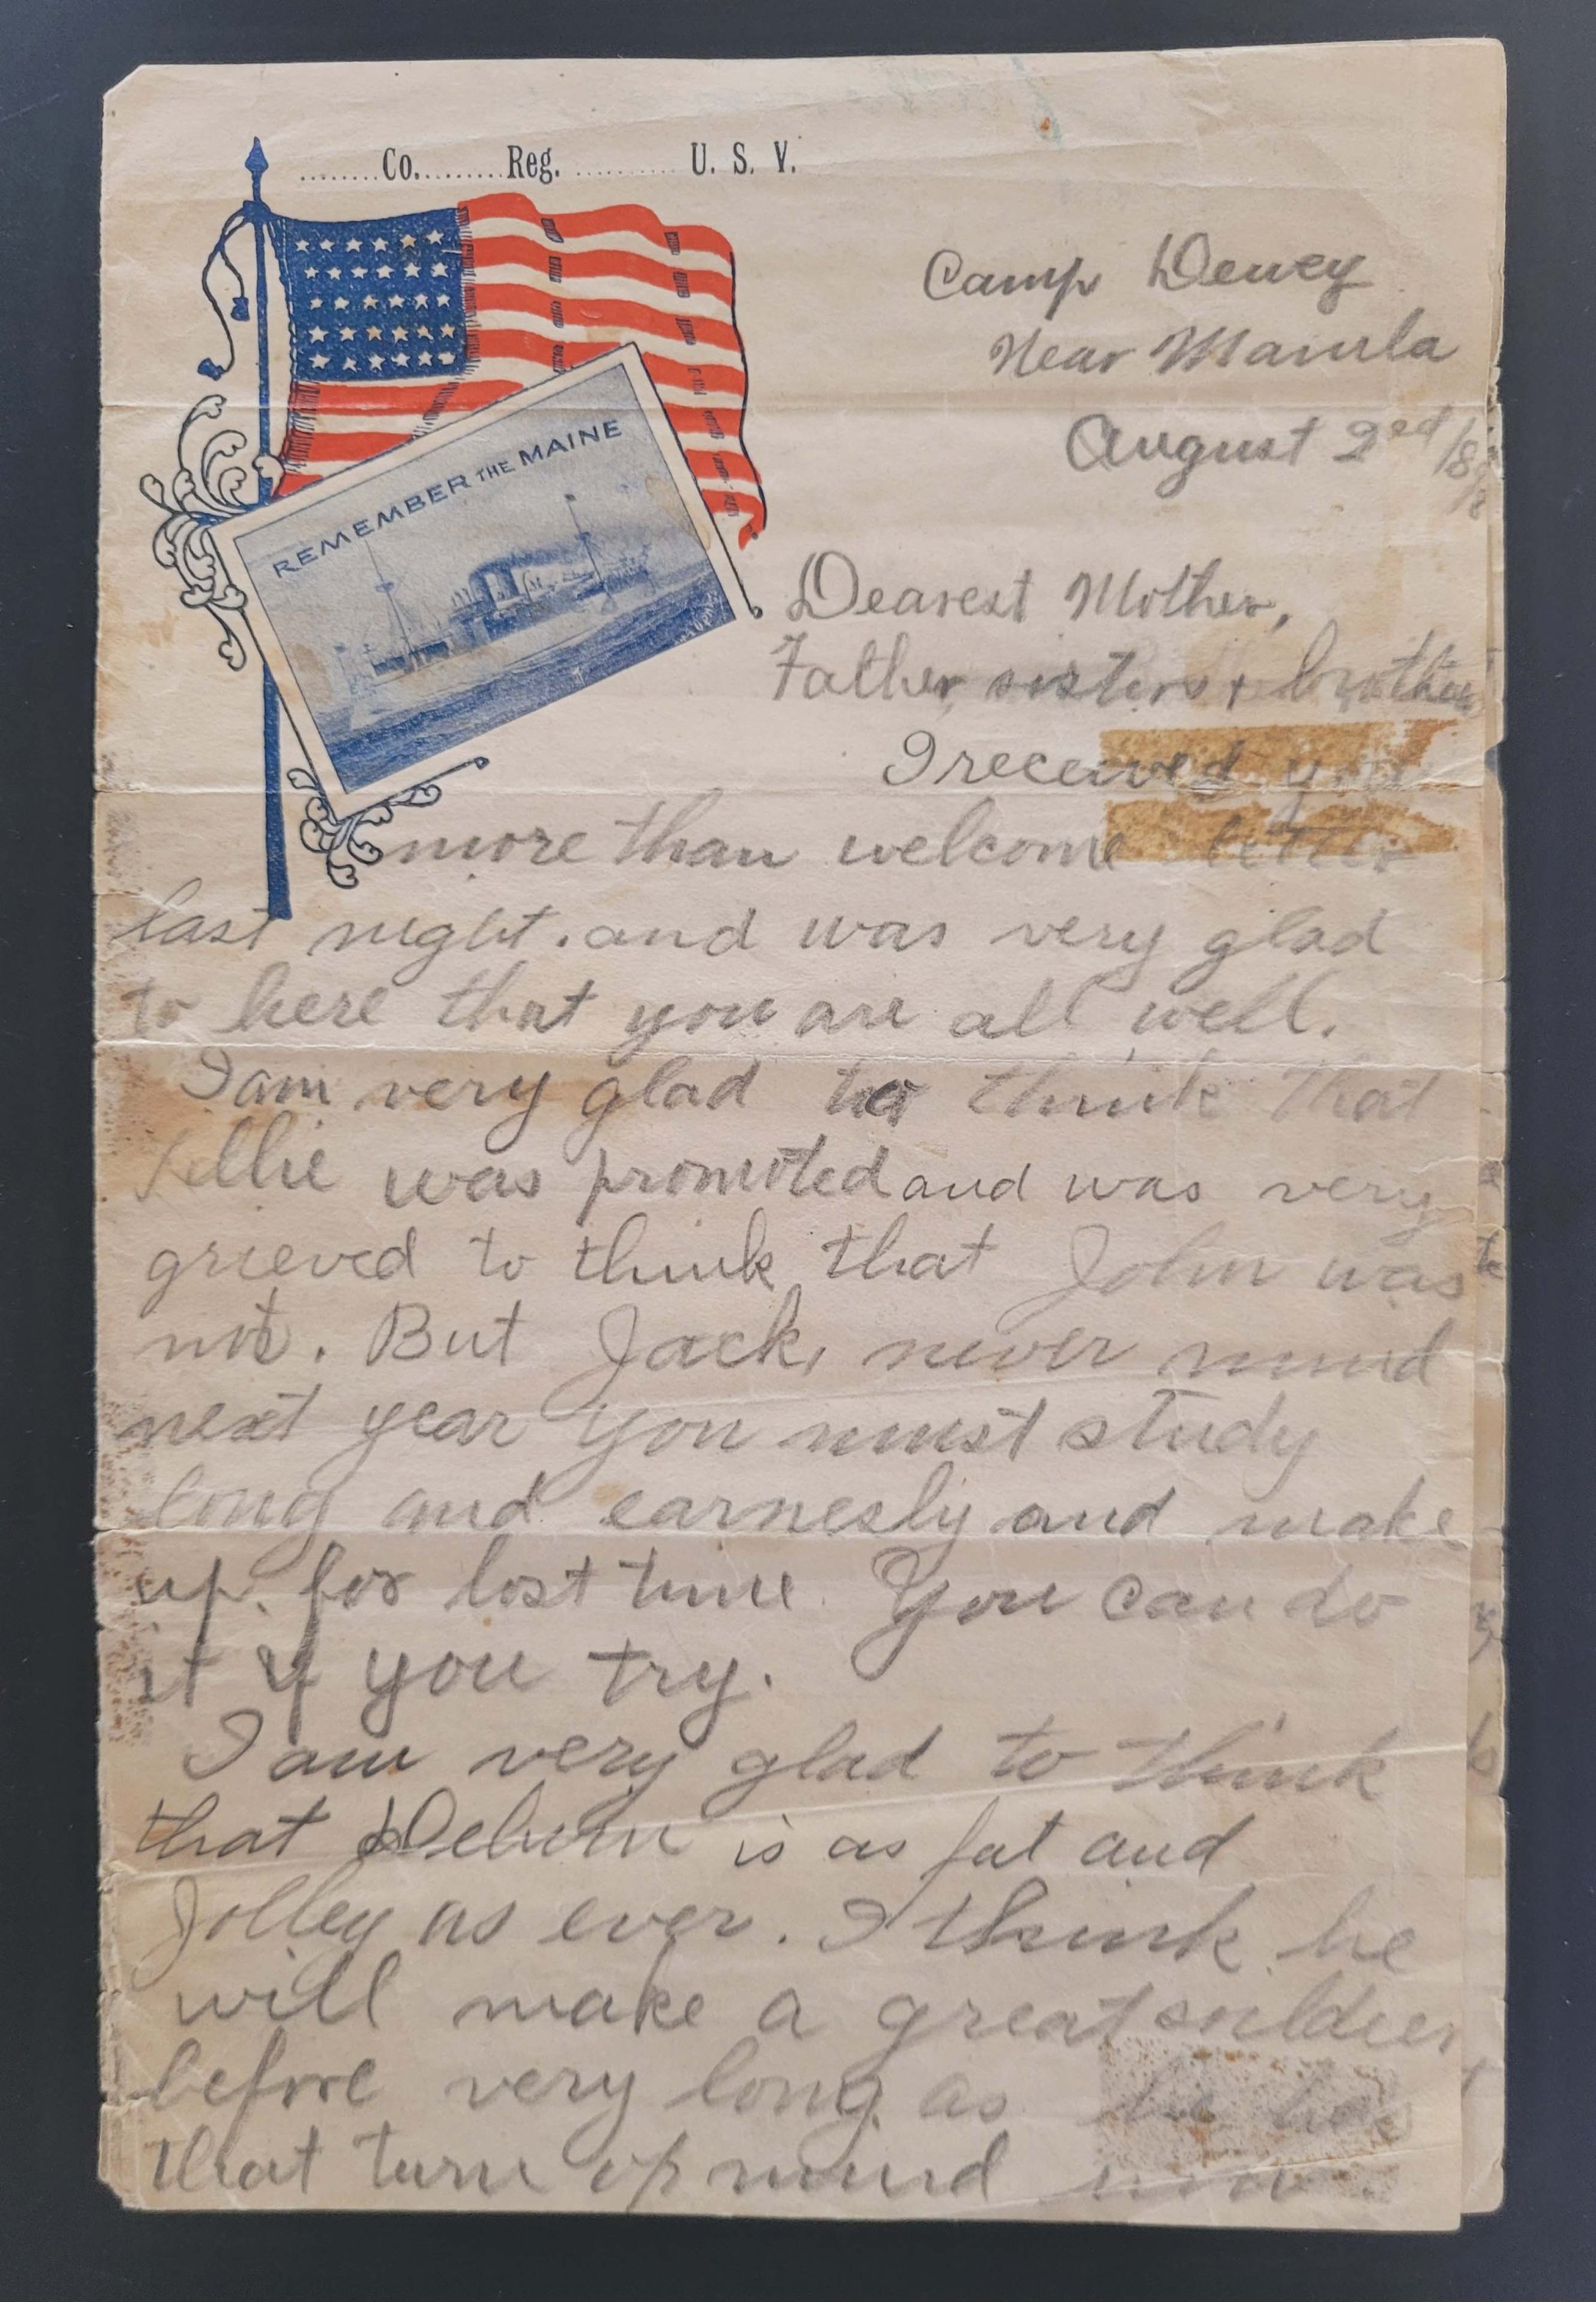 ........Co.........Reg. ........... U. S. V.
REMEMBER THE MAINE
Camp Dewey
Near Manila
August 2nd /98
Dearest Mother,
Father, sisters + brother
I received your
more than welcome letter
last night. and was very glad
to here that you are all well.
I am very glad to think that
Ellie was promoted and was very
grieved to think that John was
not. But Jack, never mind
next year you must study
long and earnesly and make
up. for lost time. You can do
it if you try.
I am very glad to think
that is as fat and
Jolley as ever. I think he
will make a great soildier
before very long. as he has
that turn of mind now.